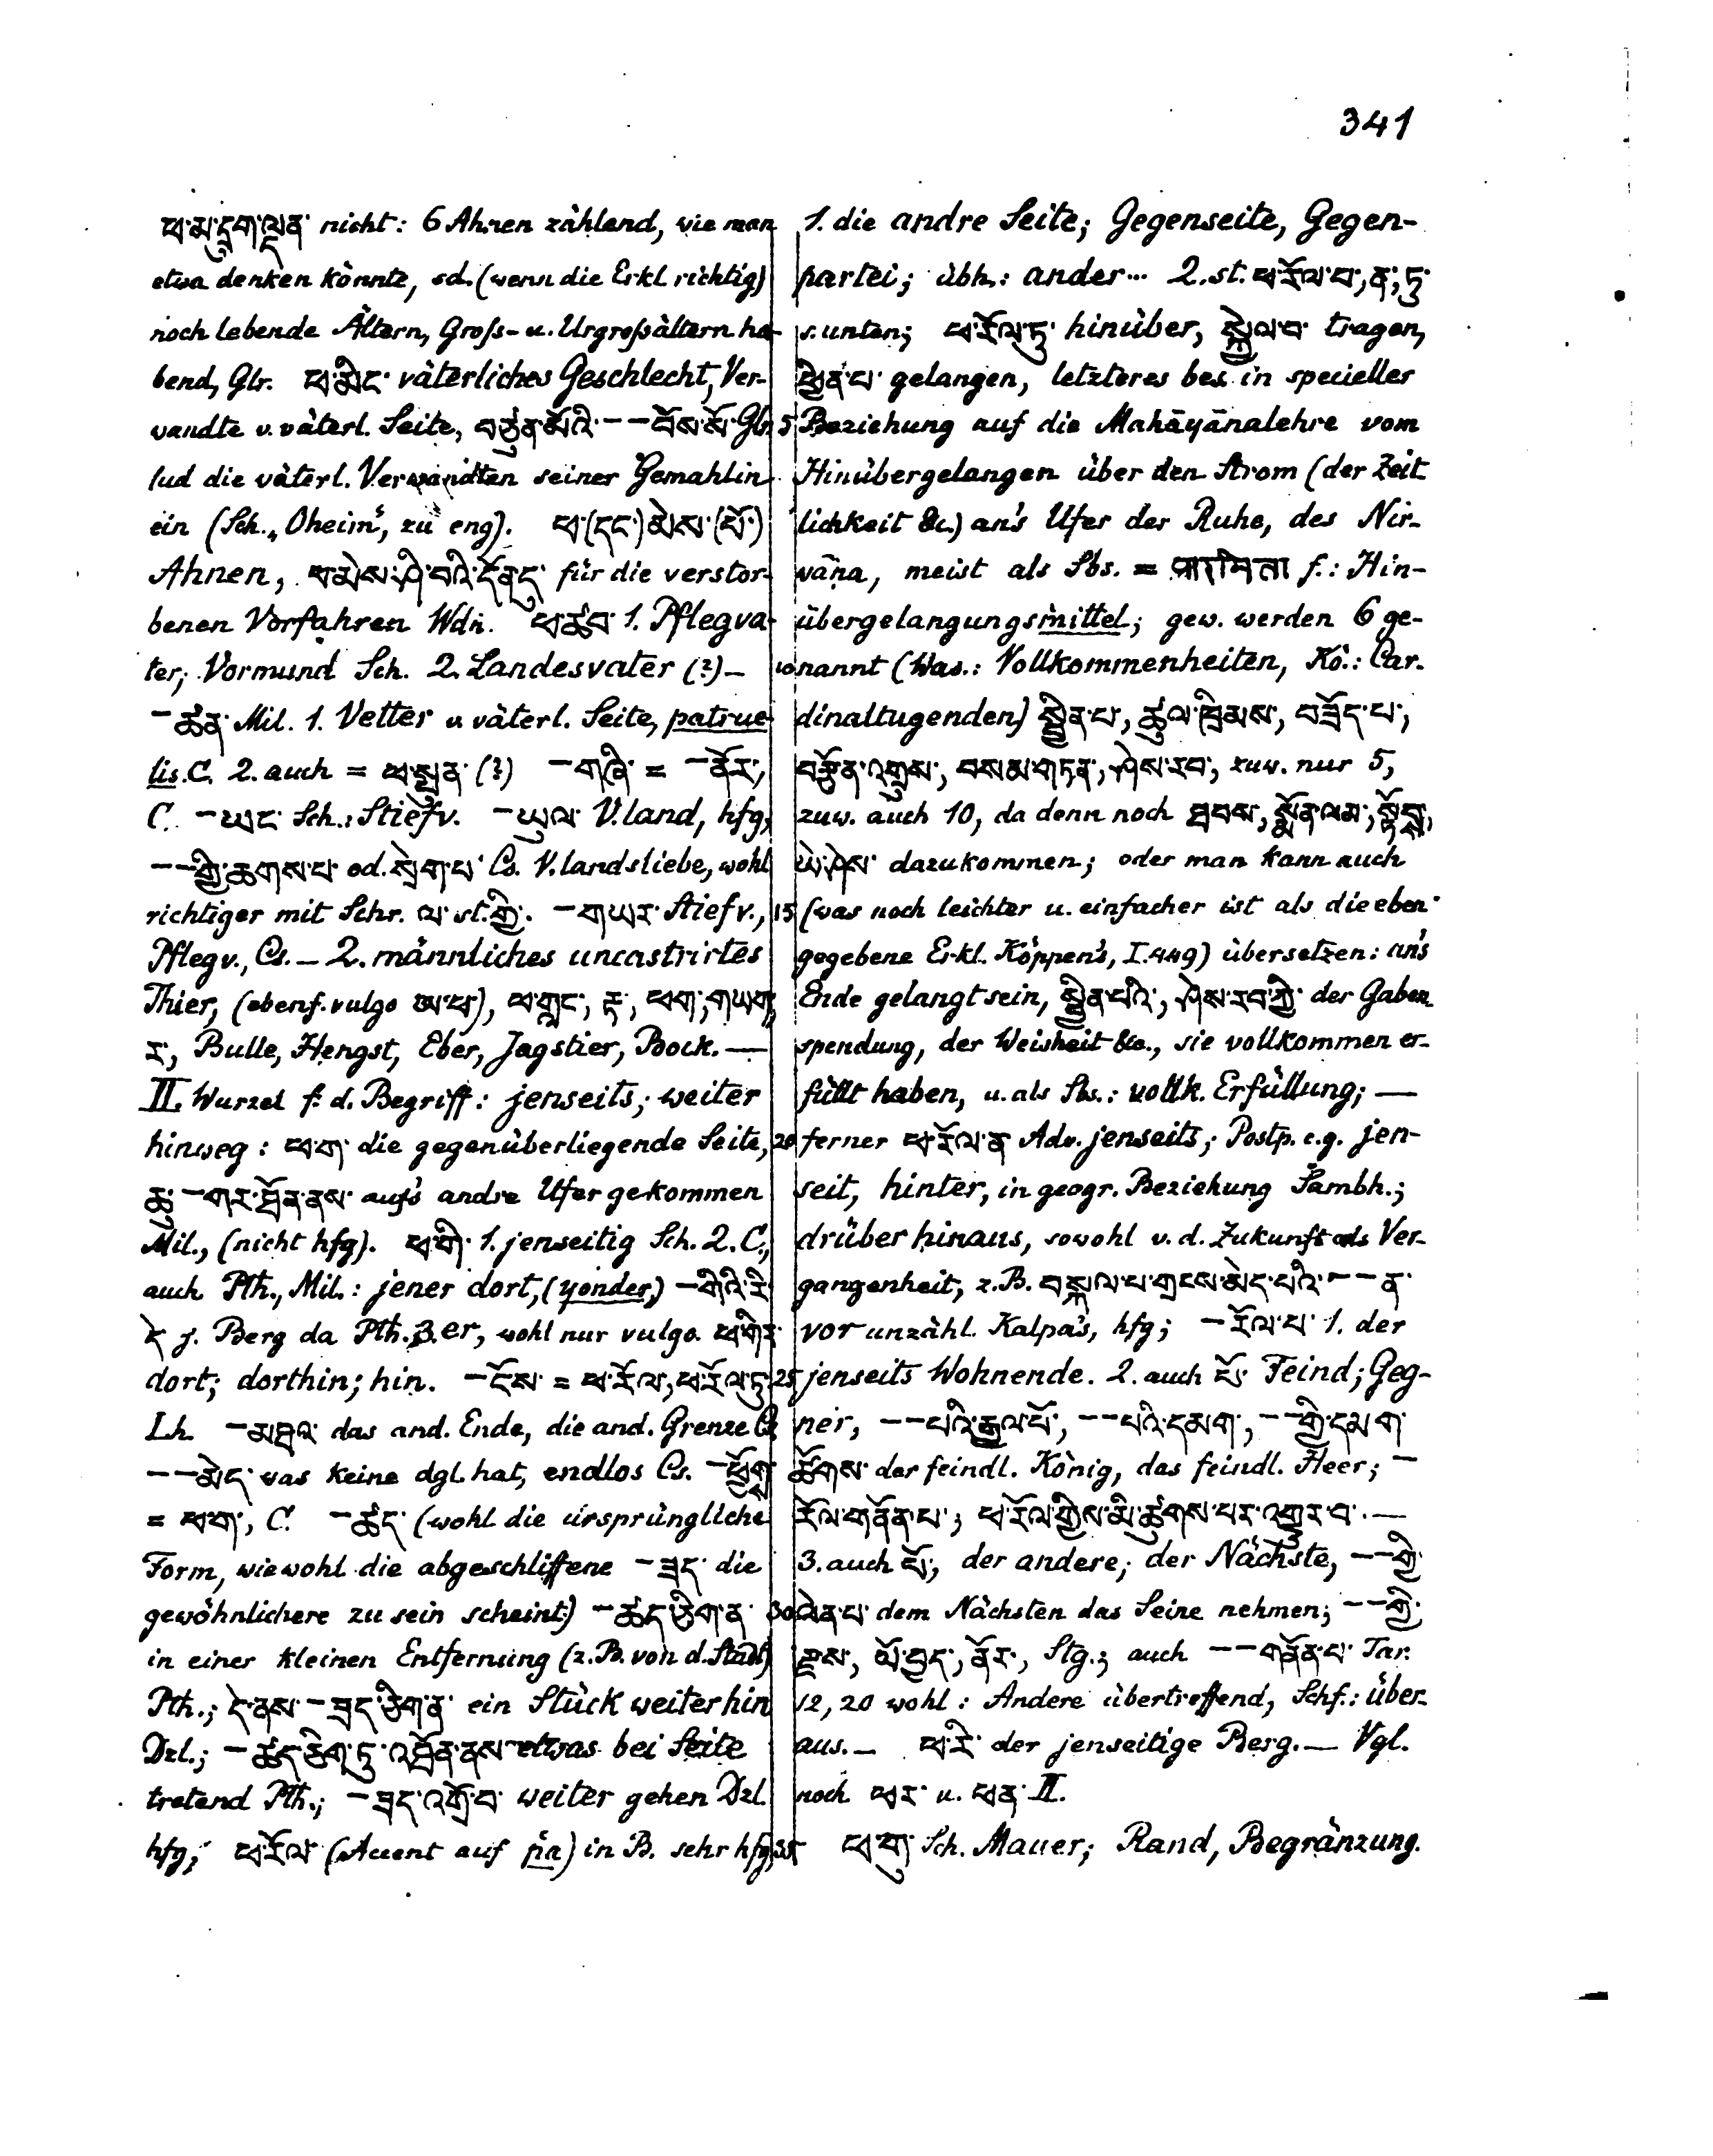 341
ཕ་མ་དྲུག་ལྡན་ nicht: 6 Ahnen zählend, wie man
etwa denken könnte, sd. (wenn die Erkl. richtig)
noch lebende Ältern, Groß- u. Urgroßältern ha-
bend, Glr. ཕ་མིང་ väterliches Geschlecht, Ver-
wandte v. väterl. Seite, བཙུན་མོའི་ -- བོས་སོ་ Glr.
lud die väterl. Verwandten seiner Gemahlin
ein (Sch. „Oheim", zu eng). ཕ་(དང་)མེས་(པོ་)
Ahnen, ཕ་མེས་ཤི་བའི་དོན་དུ་ für die verstor-
benen Vorfahren Wdn. ཕ་ཚབ་ 1. Pflegva-
ter; Vormund Sch. 2. Landesvater (?) –
-ཚན་ Mil. 1. Vetter v. väterl. Seite, patrue-
lis. C. 2. auch = ཕ་སྤུན་ (?) -གཞི་ = -ནོར་,
C. -ཡང་ Sch.: Stiefv. -ཡུལ་ V.land, hfg,
--གྱི་ཆགས་པ་ od. སྲེག་པ་ Cs. V.landsliebe, wohl
richtiger mit Schr. ལ་ st. གྱི་. -གཡར་ Stiefv.,
Pflegv., Cs. – 2. männliches uncastrirtes
Thier, (ebenf. vulgo ཨ་ཕ་), ཕ་གླང་, རྟ་, ཕག་, གཡག,
ར་, Bulle, Hengst, Eber, Jagstier, Bock. —
II. Wurzel f. d. Begriff: jenseits; weiter
hinweg: ཕ་ག་ die gegenüberliegende Seite,
ཆུ་ -གར་ཐོན་ནས་ aufs andre Ufer gekommen
Mil., (nicht hfg). ཕ་གི་ 1. jenseitig Sch. 2. C.,
auch Pth., Mil.: jener dort, (yonder) -གིའི་རི་
དེ་ j. Berg da Pth. 3. er, wohl nur vulgo. ཕ་གིར་
dort; dorthin; hin. -ངོས་ = ཕ་རོལ་, ཕ་རོལ་ཏུ་
Lh. -མཐའ་ das and. Ende, die and. Grenze Cs.
--མེད་ was keine dgl. hat, endlos Cs. -ཕྱོགས་
= ཕ་ག་, C. -ཚད་ (wohl die ursprüngliche
Form, wiewohl die abgeschliffene -ཟད་ die
gewöhnlichere zu sein scheint:) -ཚད་ཅིག་ན་
in einer kleinen Entfernung (z.B. von d. Stadt)
Pth.; དེ་ནས་ -ཟད་ཅིག་ན་ ein Stück weiterhin
Dzl.; -ཚད་ཅིག་ཏུ་འཐོན་ནས་ etwas bei Seite
tretend Pth.; -ཟད་འགྲོ་བ་ weiter gehen Dzl.
hfg; ཕ་རོལ་ (Accent auf pa) in B. sehr hfg,
1. die andre Seite; Gegenseite, Gegen-
partei; übh.: ander... 2. st. ཕ་རོལ་པ་, ན་, ཏུ་
s. unten; ཕ་རོལ་ཏུ་ hinüber, སྐྱེལ་བ་ tragen,
ཕྱིན་པ་ gelangen, letzteres bes. in specieller
5 Beziehung auf die Mahāyānalehre vom
Hinübergelangen über den Strom (der Zeit-
lichkeit &c.) an's Ufer der Ruhe, des Nir-
vāṇa, meist als Sbs. = पारमिता f.: Hin-
übergelangungsmittel; gew. werden 6 ge-
10 nannt (Was.: Vollkommenheiten, Kö.: Car-
dinaltugenden) སྦྱིན་པ་, ཚུལ་ཁྲིམས་, བཟོད་པ་,
བརྩོན་འགྲུས་, བསམ་གཏན་, ཤེས་རབ་, zuw. nur 5,
zuw. auch 10, da denn noch ཐབས་, སྨོན་ལམ་, སྟོབས་,
ཡེ་ཤེས་ dazukommen; oder man kann auch
15 (was noch leichter u. einfacher ist als die eben
gegebene Erkl. Köppen's, I. 449) übersetzen: an's
Ende gelangt sein, སྦྱིན་པའི་, ཤེས་རབ་ཀྱི་ der Gaben-
spendung, der Weisheit &c., sie vollkommen er-
füllt haben, u. als Sbs.: vollk. Erfüllung; —
20 ferner ཕ་རོལ་ན་ Adv. jenseits; Postp. c.g. jen-
seit, hinter, in geogr. Beziehung Sambh.;
drüber hinaus, sowohl v. d. Zukunft als Ver-
gangenheit, z.B. བསྐལ་པ་གྲངས་མེད་པའི་ -- ན་
vor unzähl. Kalpa's, hfg; -རོལ་པ་ 1. der
25 jenseits Wohnende. 2. auch པོ་ Feind; Geg-
ner, --པའི་རྒྱལ་པོ་, --པའི་དམག་, --གྱི་དམག་
ཚོགས་ der feindl. König, das feindl. Heer; -
རོལ་གནོན་པ་; ཕ་རོལ་གྱིས་མི་ཚུགས་པར་འགྱུར་བ་. —
3. auch པོ་, der andere; der Nächste, --གྱི་
30 ལེན་པ་ dem Nächsten das Seine nehmen; --གྱི་
རྫས་, ཡོ་བྱད་, ནོར་, Stg.; auch --གནོན་པ་ Tar.
12, 20 wohl: Andere übertreffend, Schf.: über-
aus. – ཕ་རི་ der jenseitige Berg. — Vgl.
noch ཕར་ u. ཕན་ II.
35 ཕ་གུ་ Sch. Mauer; Rand, Begränzung.